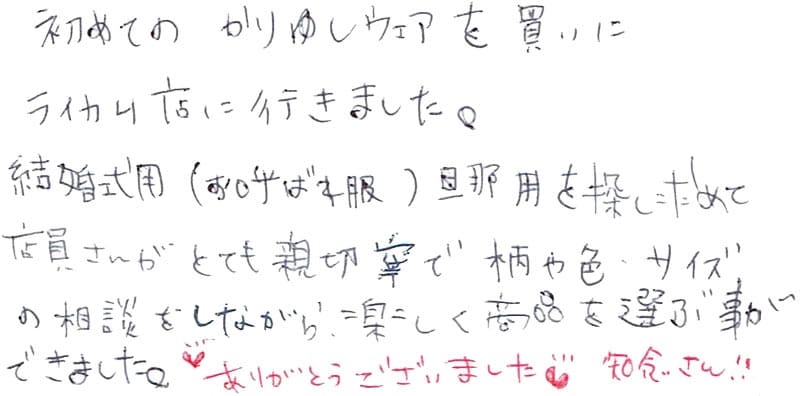 初めての かりゆしウェアを買いに
ライカム店に行きました。
結婚式用(お呼ばれ服)旦那用を探しため
店員さんが とても親切寧で 柄や色・サイズ
の相談をしながら 楽しく商品を選ぶ事が
できました。♡ありがとうございました♡ 知念さん!!